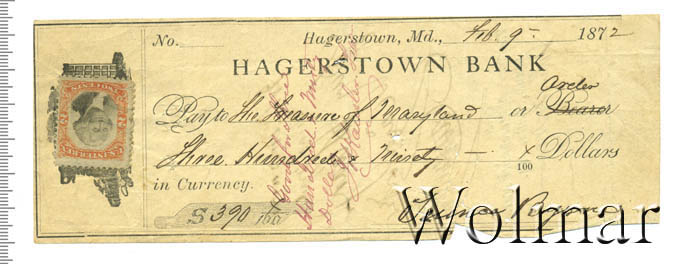 No. Hagerstown, Md., Feb. 9 1872
HAGERSTOWN BANK
Order
Pay to The Treasurer of Maryland or Bearer
Three Hundred & Ninety — x/100 Dollars
in Currency.
$ 390 /100
Good for
Hundred
Wolmar